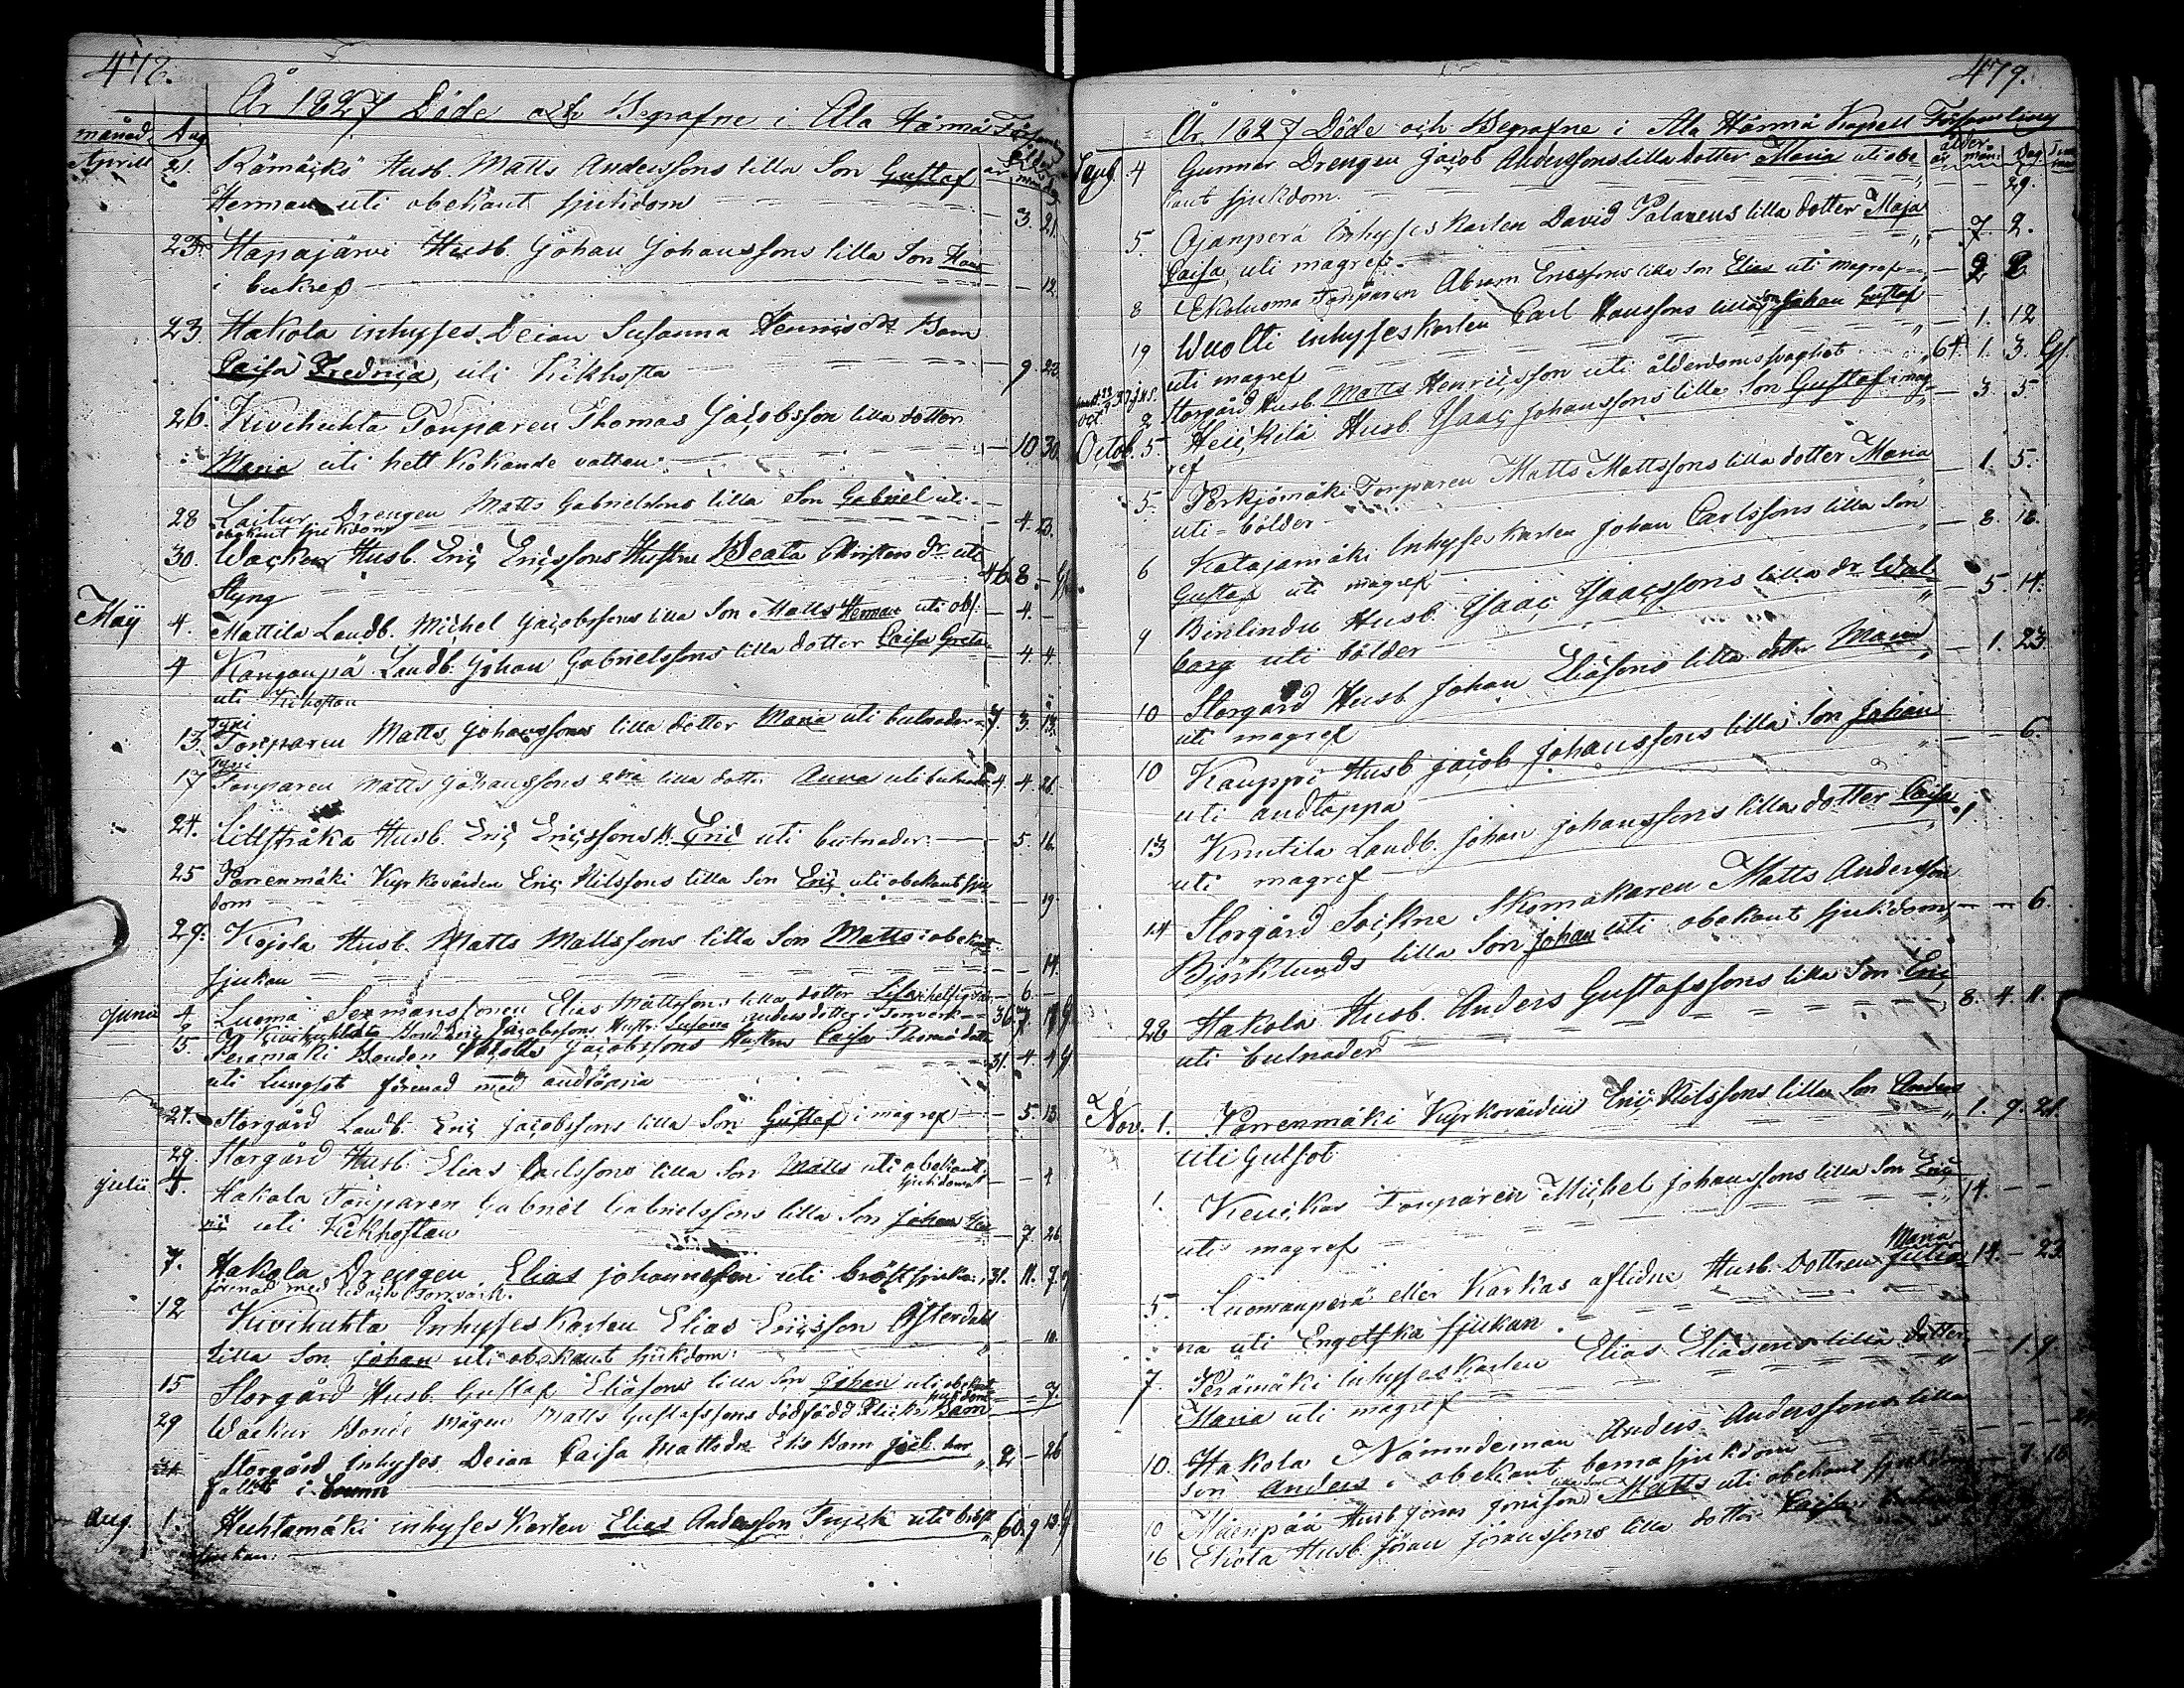 478.
År 1827 Döde och Begrafne i Ala Härmä
månad. Dag ålder
år mån dag
Aprill 21. Rämäckö Husb. Matts Anderssons lilla Son Gustaf
Herman uti obekant sjukdom 3. 21.
23. Hapajärvi Husb. Johan Johanssons lilla Son
i bukref 12.
23. Hakola inhyses Deian Susanna Henricsdr Barn
Caisa Fredrica, uti Kikhosta 9. 22.
26. Kivihuhta Torparen Thomas Jacobsson lilla dotter
Maria uti hett kokande vatten 10 30.
28 Laitur Drengen Matts Gabrielssons lilla Son Gabriel uti
obekant sjukdom 4. 23.
30. Wacker Husb. Eric Ericssons Hustru Beata Christersdr uti
Styng 46. 8. -
Maij 4. Mattila Landb. Michel Jacobssons lilla Son Matts Herman uti ob/: 4. -
4 Kanganpä Landb. Johan Gabrielssons lilla dotter Caisa Greta 4. 4.
uti Kikhostan
13. Torparen Matts Johanssons lilla dotter Maria uti bulnader 7 3. 13.
17 Torparen Matts Johanssons lilla dotter Anna uti bulnader 4 4 26.
24. Lillstråka Husb. Eric Ericssons Eric uti bulnader 5. 16
25 Porrenmäki Kyrkovärden Eric Nilssons lilla Son Eric uti obekant sju
dom 19.
29. Kojola Husb. Matts Mattssons lilla Son Matts i obekant
sjukan 14.
Junii 4 Luoma Elias Mattssons lilla dotter Lisa 6. -
Kivihuhta Eric Jacobssons Hustr. Susanna Andersdotter i 36 7.
15. Perämäki Bonden Matts Jacobssons Hustru Caisa Thomæ dotter 31. 4. 4
uti Lungsot förenad med andtäppa
27. Storgård Landb. Eric Jacobssons lilla Son Gustaf i magref 5. 13.
29. Storgård Husb. Elias Carlssons lilla Son Matts uti obekant
sjukdom 1
Julii 4. Hakola Torparen Gabriel Gabrielssons lilla Son Johan
uti Kikhostan 7. 26.
7. Hakola Drengen Elias Johansson uti bröstsjuka 31. 11. 7.
förenad med
12 Kivihuhta Inhyses Karlen Elias Ericsson Österdahl
lilla Son Johan uti obekant sjukdom 10.
15 Storgård Husb. Gustaf Eliæsons lilla Son Johan uti obekant
sjukdom 7.
29 Wäckur Bonde Mågen Matts Gustafssons dödfödd Flick Barn
Storgård inhyses Deian Caisa Mattsdr Barn Joel har 2 - 26
fallit i
Aug. 1. Huhtamäki inhyses Karlen Elias Andersson Frisk uti bröst 60. 9 13.
sjukan
479.
År 1827 Döde och Begrafne i Ala Härmä Kapell Församling
ålder
år mån: Dag
4 Gunnar Drengen Jacob Anderssons lilla dotter Maria uti obe
kant sjukdom. 29.
5. Ojanperä Inhyses karlen David Palanens lilla dotter Maja
Caisa, uti magref 7. 2.
8 Ekoluoma Torparen Abram Ericssons lilla Son Elias uti magref 2 2
19 Wuolti Inhyses karlen Carl Hanssons lilla son Johan Gustaf
uti magref 1. 12
Storgård Husb. Matts Henricsson uti ålderdomssvaghet 64. 1. 3.
Octob. 5 Heickilä Husb. Isaac Johanssons lilla Son Gustaf i mag
ref 3. 5.
5. Perkjömäki Torparen Matts Mattssons lilla dotter Maria
uti bölder 1. 5.
6 Katajamäki Inhyses karlen Johan Carlssons lilla Son
Gustaf uti magref 8. 18.
9 Binlindu Husb. Isaac Isaacssons lilla dr. Wal
borg uti bölder 5. 14.
10 Storgård Husb. Johan Eliæsons lilla dotter Maria
uti magref 1. 23.
10 Kauppi Husb. Jacob Johanssons lilla Son Johan
uti andtäppa 6.
13 Knutila Landb. Johan Johanssons lilla dotter Caisa
uti magref
14 Storgård Sockne Skomakaren Matts Andersson
Björklunds lilla Son Johan uti obekant sjukdom 6.
28 Hakola Husb. Anders Gustafssons lilla Son Eric
uti bulnader 8. 4. 11.
Nov. 1. Porrenmäki Kyrkovärden Eric Nilssons lilla Son Anders
uti Gulsot 1. 9. 21.
1. Keuckar Torparen Michel Johanssons lilla Son Eric
uti magref 14. - -
Maria
5. Luomanperä eller Karkas aflidne Husb. Dottren Julia
na uti Engelska sjukan 14 - 23
7. Perämäki inhyses Karlen Elias Eliæsons lilla dotter
Maria uti magref 1. 9.
10. Hakola Nämndeman Anders Anderssons lilla
Son Anders i obekant barnasjukdom
10 Mäenpää Husb. Jonas Jonæson lilla son Matts uti obekant sjukdom 7. 16
16 Ekola Husb. Jöran Jöranssons lilla dotter Caisa